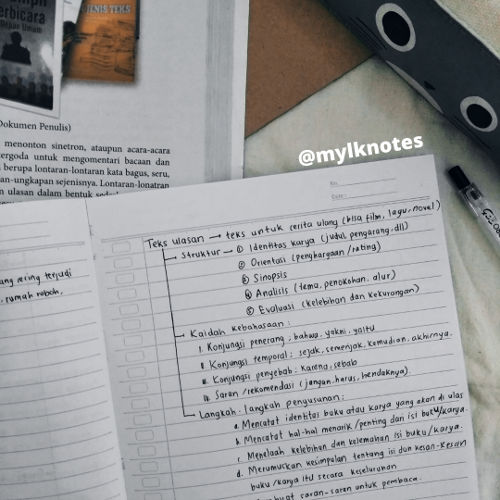 erbicara
Depan Umum
JENIS TEKS
Dokumen Penulis)
menonton sinetron, ataupun acara-acara
tergoda untuk mengomentari bacaan dan
berupa lontaran-lontaran kata bagus, seru,
an-ungkapan sejenisnya. Lontaran-lontaran
ulasan dalam bentuk
@mylknotes
No.
Date.
ang sering terjadi
, rumah roboh,
Teks ulasan → teks untuk cerita ulang (bisa film, lagu, novel)
Struktur → ① Identitas karya (judul, pengarang, dll)
② Orientasi (penghargaan /rating)
③ Sinopsis
④ Analisis (tema, penokohan, alur)
⑤ Evaluasi (kelebihan dan kekurangan)
Kaidah Kebahasaan :
I. Konjungsi penerang : bahwa, yakni, yaitu
II. Konjungsi temporal : sejak, semenjak, kemudian, akhirnya.
III. Konjungsi penyebab : karena, sebab
IV. Saran /rekomendasi (jangan, harus, hendaknya)
Langkah-langkah penyusunan :
a. Mencatat identitas buku atau karya yang akan di ulas
b. Mencatat hal-hal menarik /penting dari isi buku/karya.
c. Menelaah kelebihan dan kelemahan isi buku/karya.
d. Merumuskan kesimpulan tentang isi dan kesan-kesan
buku/karya itu secara keseluruhan
saran-saran untuk pembaca.